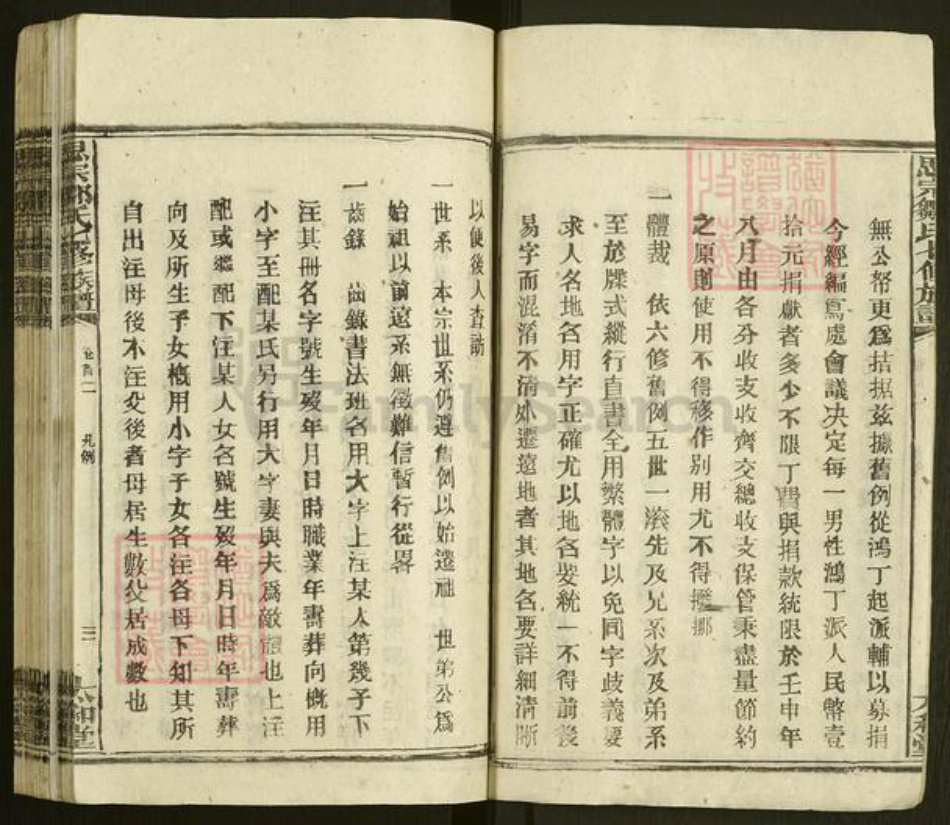 無公帑更爲拮据茲據舊例從鴻丁起派輔以募捐
今經編寫處會議決定每一男性鴻丁派人民幣壹
拾元捐獻者多少不限丁費與捐款統限於壬申年
八月由各分收支收齊交總收支保管秉盡量節約
之原則使用不得移作别用尤不得撥挪
一體裁 依六修舊例五世一滚先及兄系次及弟系
至於牒式縱行直書全用繁體字以免同字歧義要
求人名地名用字正確尤以地名要統一不得前後
易字而混淆不清外遷遠地者其地名要詳細清晰
以便後人查訪
一世系 本宗世系仍遵舊例以始遷祖 世弟公爲
始祖以前遠系無徵難信暫行從畧
一齒錄 齒錄書法班名用大字上注某人第幾子下
注其冊名字號生殁年月日時職業年壽葬向概用
小字至配某氏另行用大字妻與夫爲敵體也上注
配或繼配下注某人女名號生殁年月日時年壽葬
向及所生子女概用小字子女各注各母下知其所
自出注母後不注父後者母居生數父居成數也
卷首二 凡例
三
FamilySearch